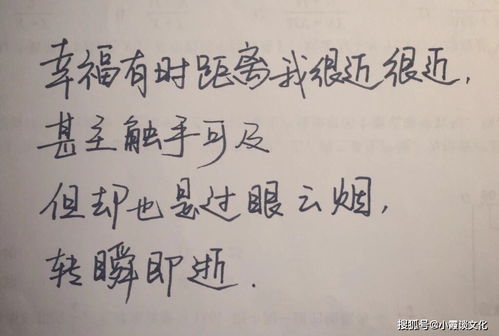 幸福有时距离我很近很近，
甚至触手可及
但却也是过眼云烟，
转瞬即逝．
搜狐号@小霞谈文化